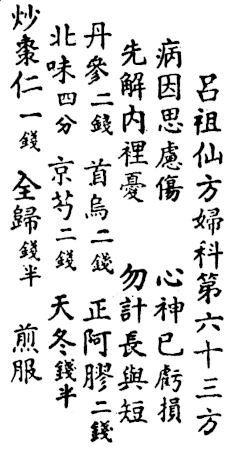 呂祖仙方婦科第六十三方
病因思慮傷　心神已虧損
先解內裡憂　勿計長與短
丹參二錢　首烏二錢　正阿膠二錢
北味四分　京芍二錢　天冬錢半
炒棗仁一錢　全歸錢半　煎服